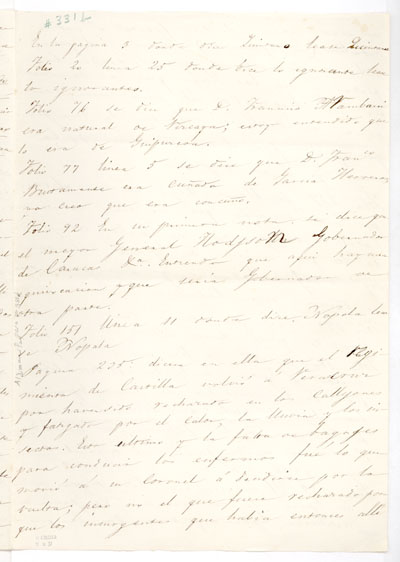 #331L
En la pagina 3 donde dice Jimeno lease
Folio 20 linea 25 donde dice lo ignorante lease
lo ignorantes.
Folio 76 se dice que D. Francisco
era natural de tengo entendido que
lo era de Guipuzcoa.
Folio 77 linea 5 se dice que D. Franco
era cuñado de Garcia Herreros
no creo que era
Folio 92 En su primera nota se dice que
el mayor General Hodgson Gobernador
de Caracas Entiendo que aqui hay una
equivocacion y que seria Gobernador en
otra parte.
Folio 151 linea 11 donde dice Nopala lease
Pagina 235 dicen en ella que el Regi
miento de Castilla volvió á Veracruz
por haber sido rechazado en los Callejones
y fatigado por el calor, la lluvia y los in
sectos. Esto ultimo y la falta de bagajes
para conducir los enfermos fué lo que
movió a su Coronel á dar la
vuelta; pero no el que fuera rechazado por
que los insurgentes que habia entonces alli